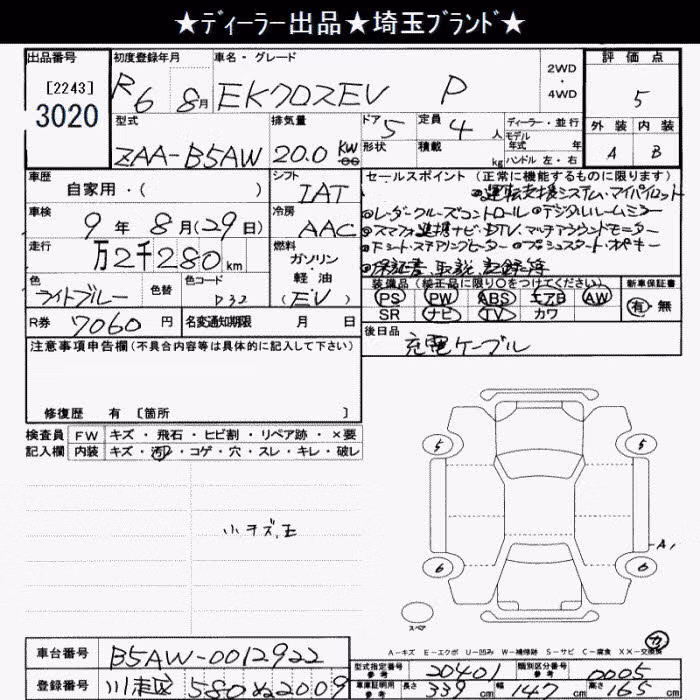 ★ディーラー出品★埼玉ブランド★
出品番号 初度登録年月 車名・グレード 2WD・4WD 評価点
[2243]
3020 R6 8月 EKクロスEV P 5
型式 排気量 ドア 5 定員 4人 ディーラー・並行 外装 内装
モデル年式 年
ZAA-B5AW 20.0 KW 形状 積載 kg ハンドル 左・右 A B
車歴 自家用・( ) シフト IAT セールスポイント(正常に機能するものに限ります)
◎運転支援システム・マイパイロット
車検 9年8月(29日) 冷房 AAC ◎レーダークルーズコントロール ◎デジタルルームミラー
◎スマフォ連携ナビ・DTV、マルチアラウンドモニター
走行 万2千280km 燃料 ガソリン・軽油 (EV) ◎Dシート・ステアリングヒーター ◎プッシュスタート・
◎保証書、取説、記録簿
色 ライトブルー 色替 色コード D32 装備品(純正品に限り○をつけてください) 新車保証書
PS PW ABS エアB AW 有・無
SR ナビ TV カワ
R券 7060円 名変通知期限 月 日 後日品
充電ケーブル
注意事項申告欄(不具合内容等は具体的に記入して下さい)
修復歴 有 [箇所 ]
検査員 FW キズ・飛石・ヒビ割・リペア跡・×要
記入欄 内装 キズ・汚れ・コゲ・穴・スレ・キレ・破レ
5 5
小キズ、
A1
6 6
スペア
A-キズ E-エクボ U-凹み W-補修跡 S-サビ C-腐食 XX-交換済
車台番号 B5AW-0012922 型式指定番号 参考 20401 類別区分番号 参考 0005
登録番号 川走区 580 2009 車庫証明用 参考 長さ 339cm 幅 147cm 高さ 165cm